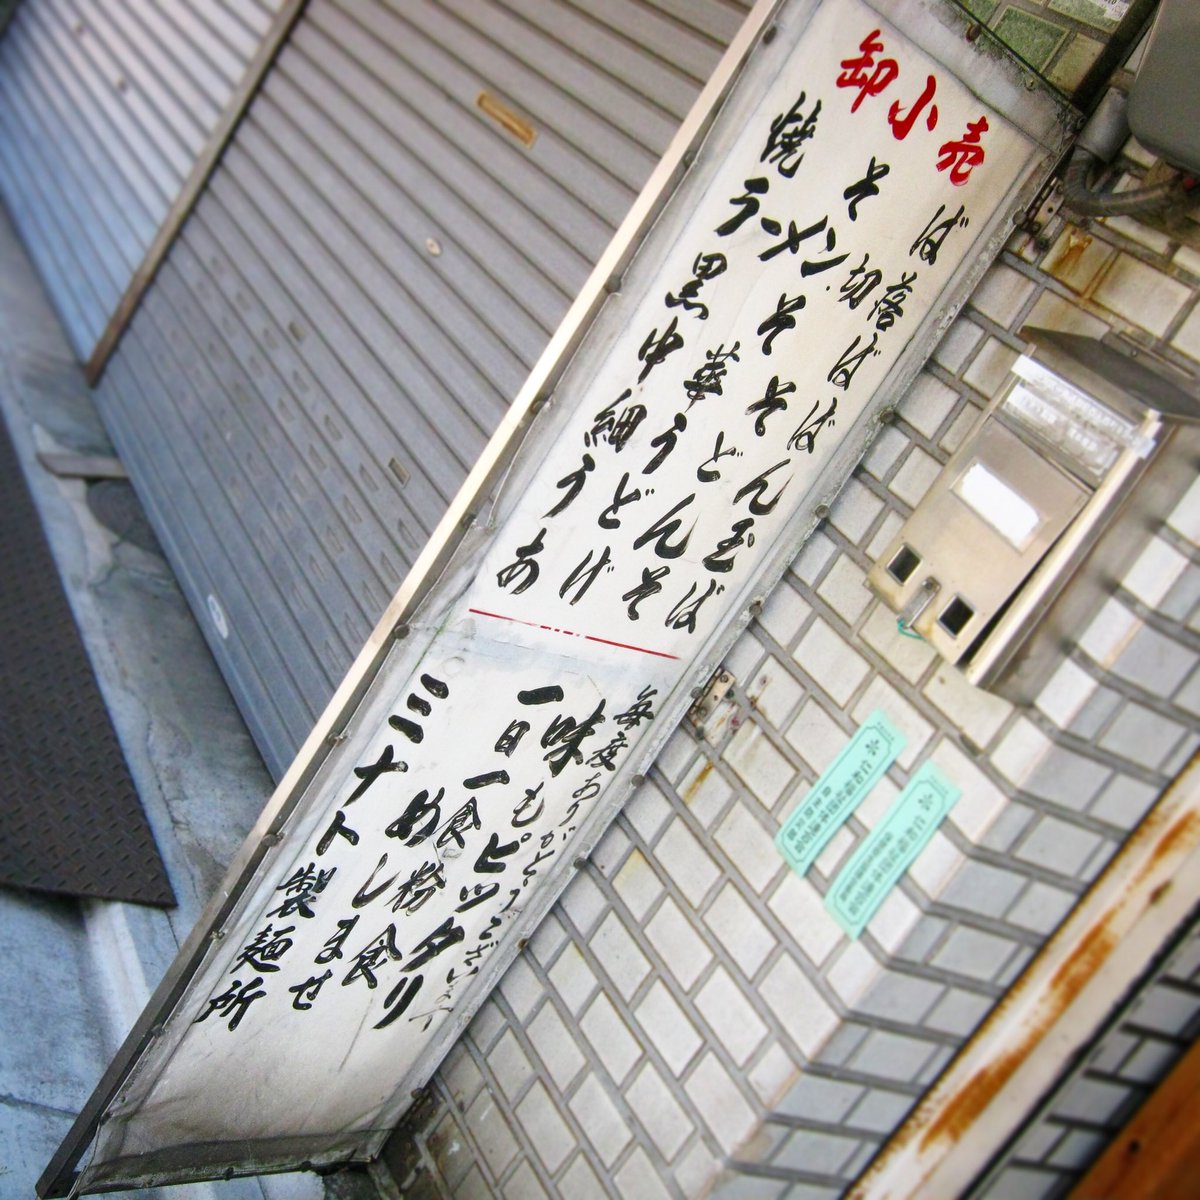 卸小売
焼そば
ラーメン切落
黒そば
中華そば
細うどん
うどん玉
あげそば
毎度ありがとうございます
味もピッタリ
一日一食粉食
めしませ
ミナト製麺所